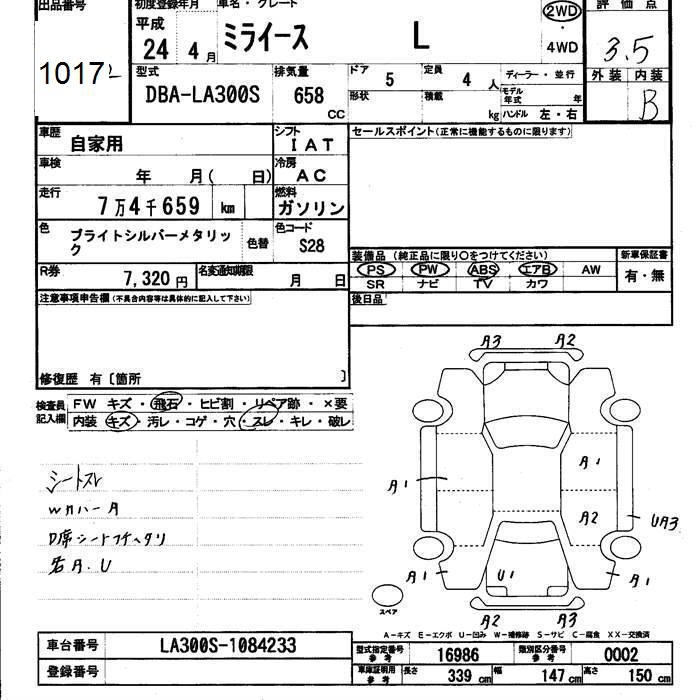 出品番号 初度登録年月 車名・グレード 2WD 評価点
平成 24 4月 ミライース L 4WD 3.5
1017
型式 排気量 ドア 5 定員 4人 ディーラー・並行 外装 内装
DBA-LA300S 658 CC 形状 積載 kg モデル年式 年 ハンドル 左・右 B
車歴 自家用 シフト IAT セールスポイント(正常に機能するものに限ります)
車検 年 月( 日) 冷房 AC
走行 7万4千659 km 燃料 ガソリン
色 ブライトシルバーメタリック 色替 色コード S28
装備品 (純正品に限り○をつけてください) 新車保証書
PS PW ABS エアB AW 有・無
SR ナビ TV カワ
R券 7,320円 名変通知期限 月 日
後日品
注意事項申告欄(不具合内容等は具体的に記入して下さい)
修復歴 有〔箇所 〕
検査員記入欄 FW キズ・飛石・ヒビ割・リペア跡・×要
内装 キズ・汚レ・コゲ・穴・スレ・キレ・破レ
A3 A2
シートスレ
WカバーA
D席シートフチヘタリ
若A.U
A1 A1
A2 UA3
A1 U1 A1
スペア
A2 A3
A-キズ E-エクボ U-凹み W-補修跡 S-サビ C-腐食 XX-交換済
車台番号 LA300S-1084233
登録番号
型式指定番号 参考 16986 類別区分番号 参考 0002
車庫証明用 参考 長さ 339 cm 幅 147 cm 高さ 150 cm